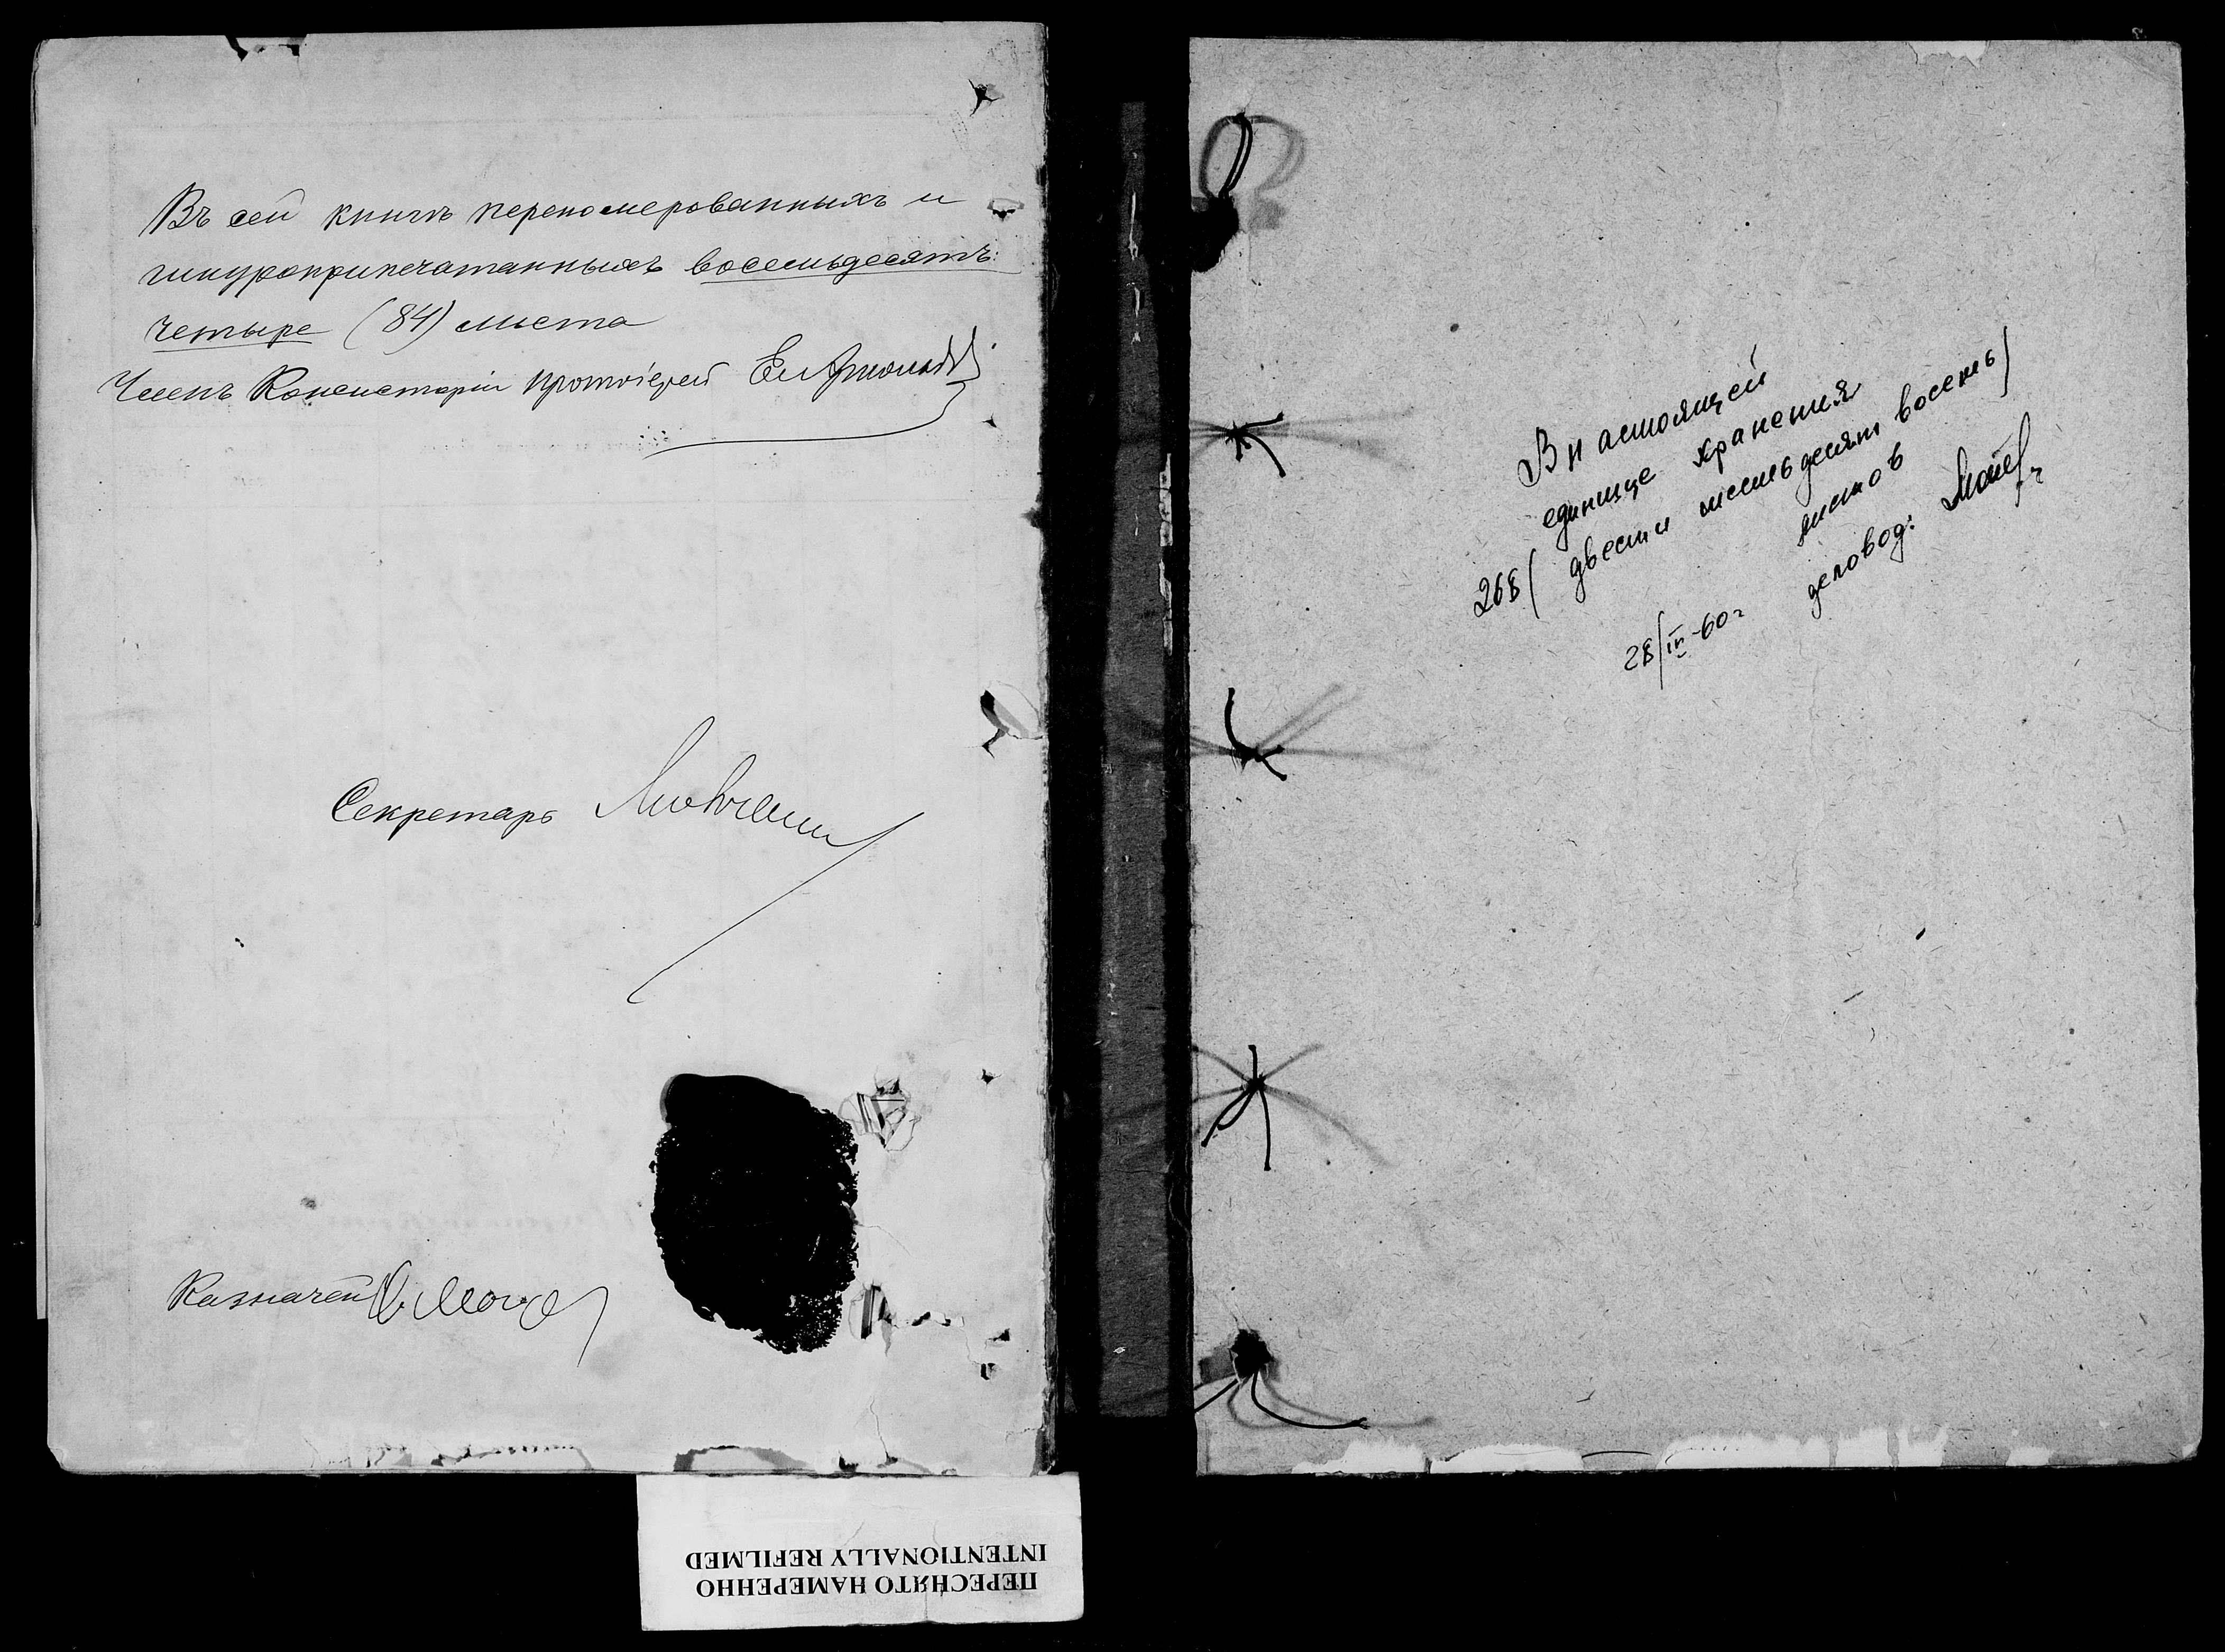 Въ сей книгѣ переномерованныхъ и
шнуроприпечатанныхъ восемьдесятъ
четыре (84) листа
Членъ Консисторіи протоіерей
Секретарь
Казначей
В настоящей
единице хранения
268 (двести шестьдесят восемь)
листов
28/III-60 г деловод:
ПЕРЕСНЯТО НАМЕРЕННО
INTENTIONALLY REFILMED